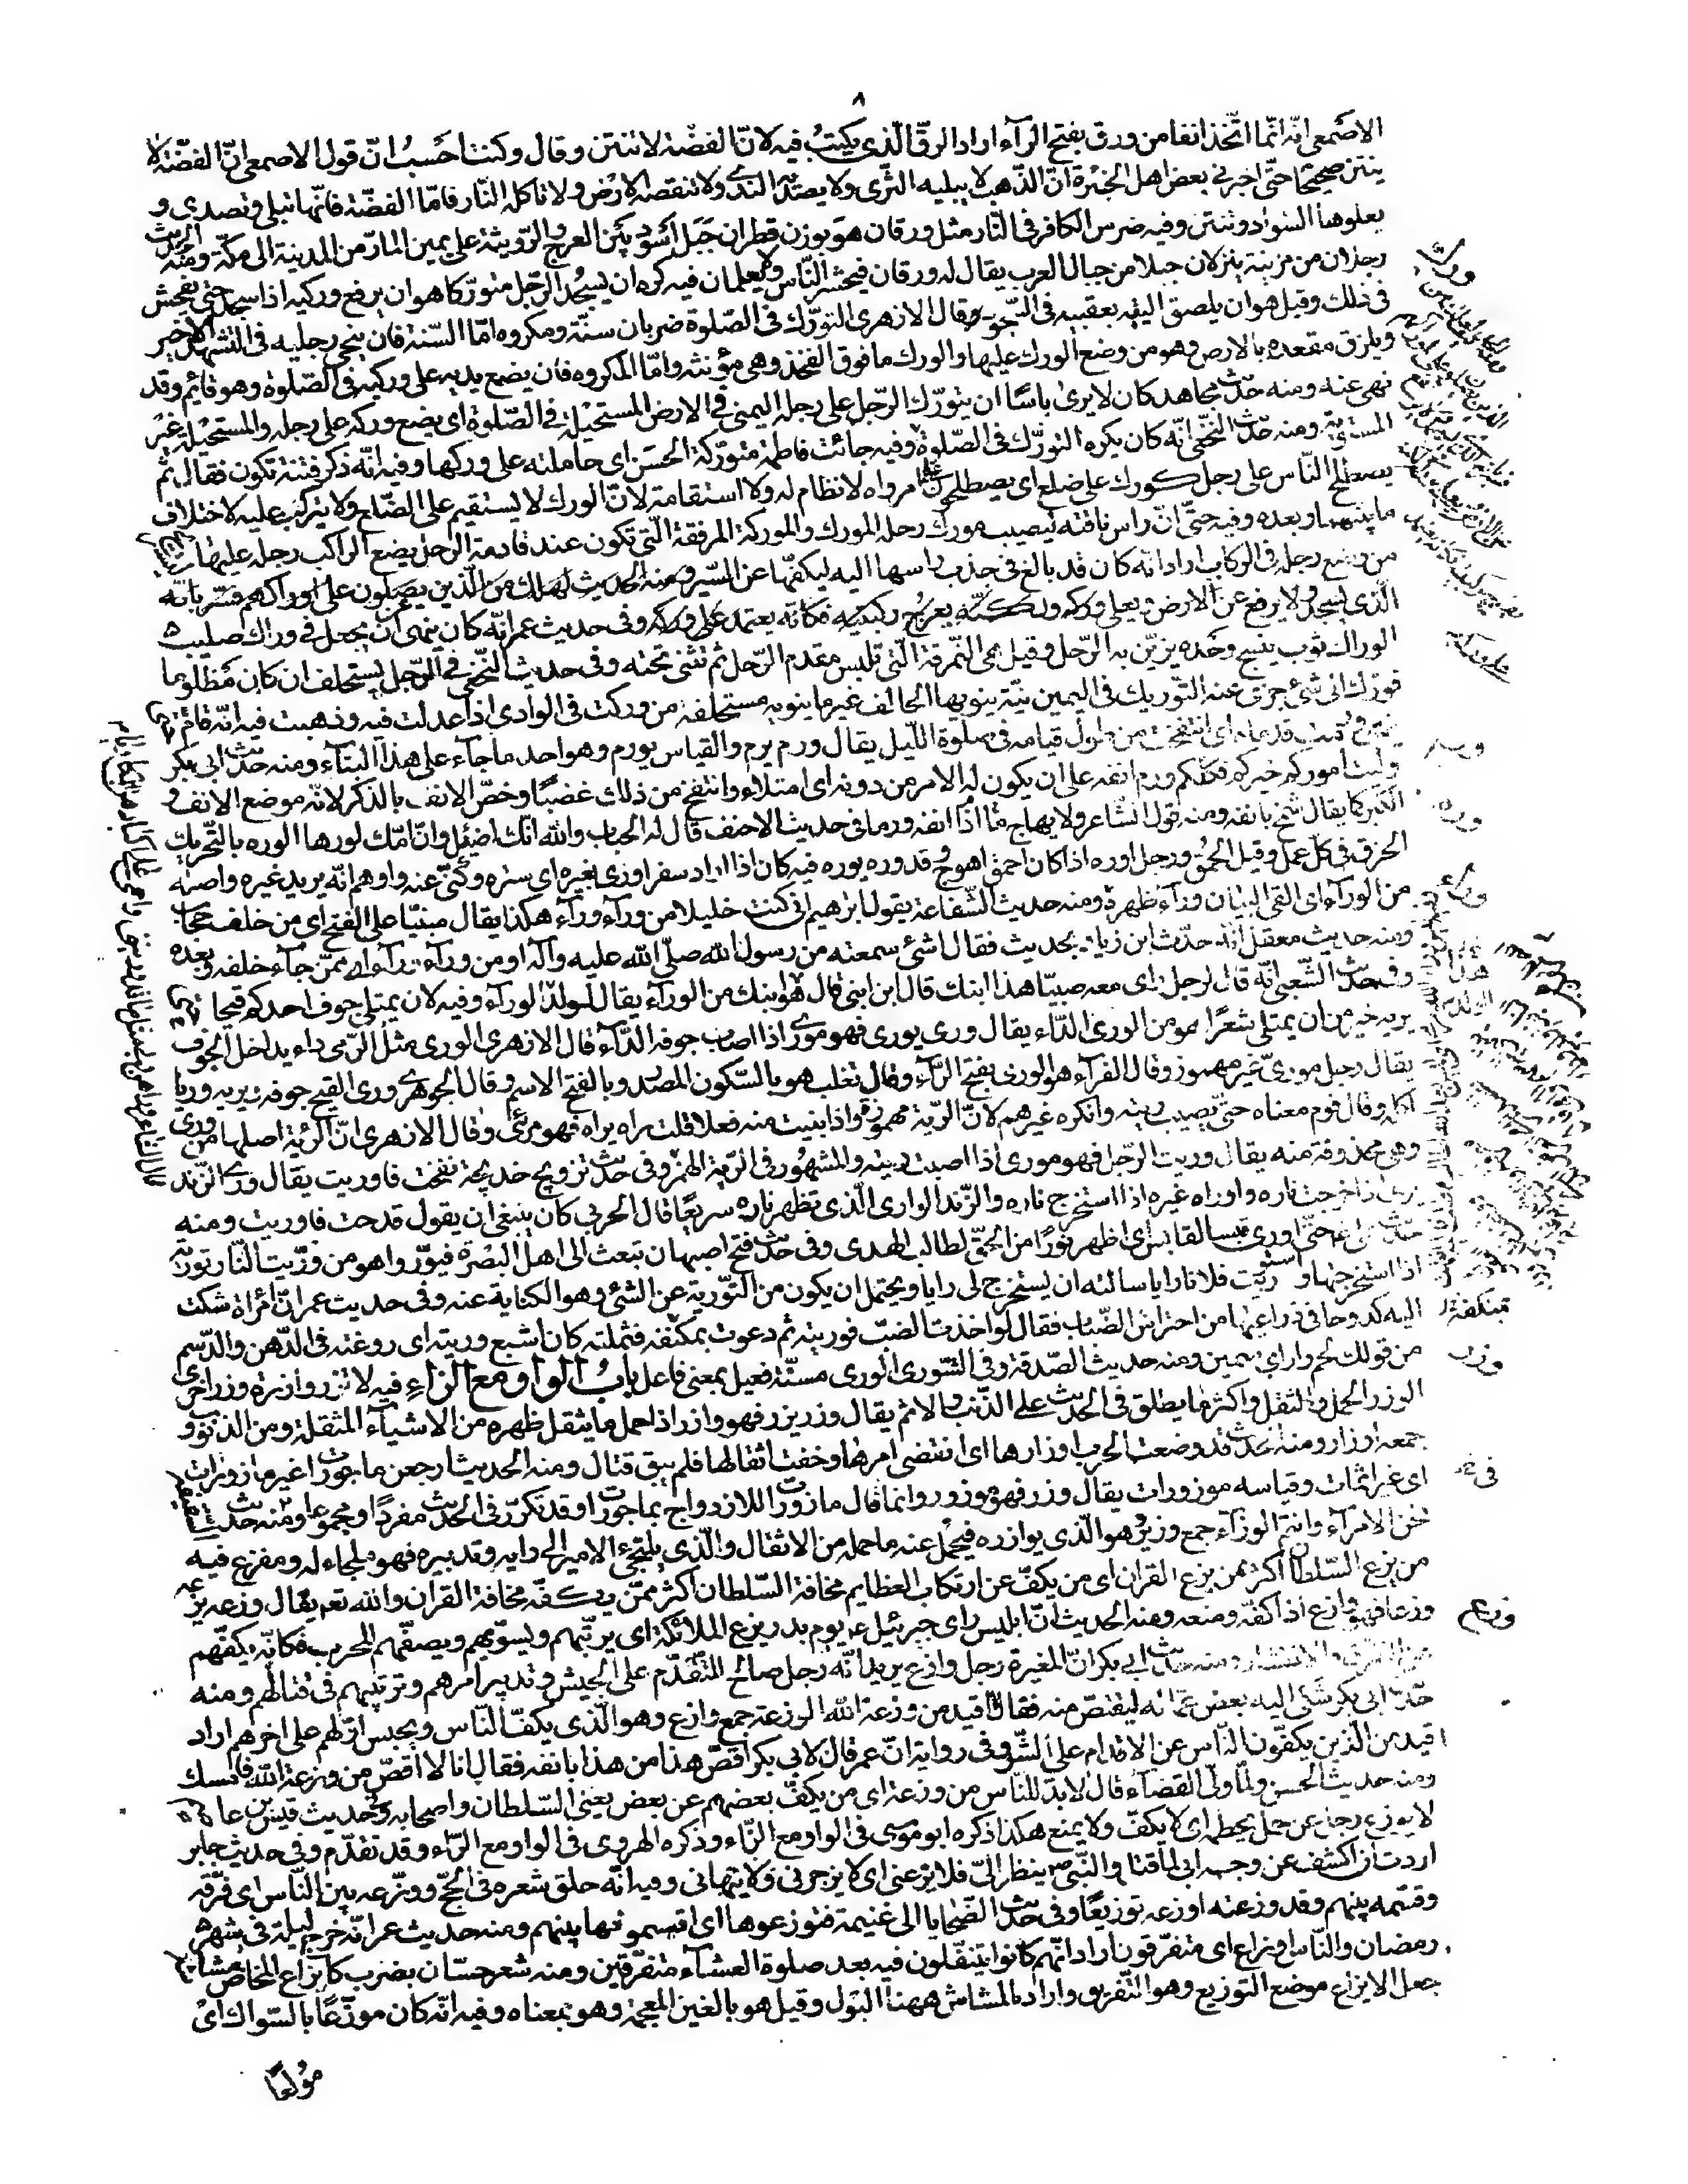 ٨
الاصمعی انّه انّما اتّخذ انفا من ورق بفتح الرآء اراد الرقّ الّذی یکتبُ فیه لانّ الفضّة لا تنتن و قال وکنت احسبُ انّ قول الاصمعی انّ الفضّة لا
ینتن صحیحًا حتّی اخبرنی بعض اهل الخبرة انّ الذّهب لا یبلیه الثّری ولا یصدئه النّدی ولا تنقصه الارض ولا تاکله النّار فامّا الفضّة فانّها تبلی وتصدی و
یعلوها السّواد وتنتن وفیه ضرس الکافر فی النّار مثل ورقان هو بوزن قطران جَبَل اسْود بیْن العرج والرّویثة علی یمین المارّ من المدینة الی مکّة ومنه الحدیث
رجلان من مزینة ینزلان جبلا من جبال العرب یقال له ورقان فیحشر النّاس ولا یعلمان فیه کره ان یسجُد الرّجل متورّکا هو ان یرفع ورکیه اذا سجد حتّی یفحش
فی ذلک وقیل هو ان یلصق الیتیه بعقبیه فی السّجود وقال الازهری التورّک فی الصّلوة ضربان سنّة ومکروه امّا السّنة فان ینحی رجلیه فی التشهّد الاخیر
ویلزق مقعده بالارض وهو من وضع الورک علیها والورک ما فوق الفخذ وهی مؤنثة وامّا المکروه فان یضع یدیه علی ورکیه فی الصّلوة وهو قائم وقد
نهی عنه ومنه حدّیث مجاهد کان لا یری باسًا ان یتورّک الرّجل علی رجله الیمنی فی الارض المستحیلة فی الصّلوة ای یضع ورکه علی رجله والمستحیلة غیر
المستویة ومنه حدّیث النخعی انّه کان یکره التورّک فی الصّلوة وفیه جائت فاطمة متورّکة الحسَن ای حاملته علی ورکها وفیه انّه ذکر فتنة تکون فقال ثم
یصطلح النّاس علی رجل کورک علی ضلع ای یصطلحون علی امر واه لا نظام له ولا استقامة لانّ الورک لا یستقیم علی الضّلع ولا یترکّب علیه لاختلاف
ما بینهما وبعده وفیه حتّی انّ راس ناقته لیصیب مورک رحله المورک والمورکة المرفقة الّتی تکون عند قادمة الرحل یضع الراکب رجله علیها
من وضع رجله فی الرکاب اراد انّه کان قد بالغ فی جذب راسها الیه لیکفّها عن السّیر ومنه الحدیث لعلّک من الّذین یصلّون علی اوراکهم فسّر بانّه
الّذی یسجد ولا یرفع عن الارض ویعلی ورکه ولکنّه یعرّج رکبتیه فکانّه یعتمد علی ورکه وفی حدیث عمر انّه کان ینهی ان یجعل فی وراک صلیب
الوراک ثوب ینسج وحده یزیّن به الرّحل وقیل هی النّمرقة الّتی تلبس مقدم الرّحل ثم تثنی تحته وفی حدیث النّخعی فی الرّجل یستحلف ان کان مظلوما
فورّک الی شئ جزی عنه التّوریک فی الیمین نیّة ینویها الحالف غیر ما ینویه مستحلفه من ورکت فی الوادی اذا عدلت فیه وذهبت فیه انّه قام حتّی
ورمت قدماه ای انتفخت من طول قیامه فی صلوة اللّیل یقال ورم یرم والقیاس یورم وهو احد ما جآء علی هذا البنآء ومنه حدّیث ابی بکر
ولیت امورکم خیرکم فکلّکم ورم انفه علی ان یکون له الامر من دونه ای امتلاء وانتفخ من ذلک غضبًا وخصّ الانف بالذکر لانّه موضع الانفة و
الکبر کما یقال شمخ بانفه ومنه قول الشّاعر ولا یهاج اذا ما انفه ورما فی حدیث الاحنف قال له الحباب والله انّک لضئیل وانّ امّک لورهاء الوره بالتّحریک
الخرق فی کلّ عمل وقیل الحُمق ورجل اوره اذا کان احمق اهوج وقد وره یوره فیه کان اذا اراد سفرا ورّی بغیره ای ستره وکنّی عنه واوهم انّه یرید غیره واصله
من الورآء ای القی البیان ورآء ظهره ومنه حدیث الشّفاعة یقول ابراهیم انّی کنت خلیلا من ورآء ورآء هکذا یقال مبنیّا علی الفتح ای من خلف حجاب
ومنه حدیث معقل انّه حدّث ابن زیاد بحدیث فقال اشئ سمعته من رسول الله صلّی الله علیه وآله او من ورآء ورآء ای ممّن جآء خلفه وبعده
وفی حدّیث الشّعبی انّه قال لرجل رای معه صبیّا هذا ابنک قال ابن ابنی قال هو ابنک من الورآء یقال لولد الولد الورآء وفیه لان یمتلئ جوف احدکم قیحا حتّی
یریه خیر من ان یمتلئ شعرًا هو من الوری الدّاء یقال وری یوری فهو مورىّ اذا اصاب جوفه الدّآء قال الازهری الوری مثل الرّمی داء یداخل الجوف
یقال رجل موریّ غیر مهموز وقال الفرّاء هو الوری بفتح الرّآء وقال ثعلب هو بالسّکون المصدر وبالفتح الاسم وقال الجوهری وری القیح جوفه یریه وریا
اکله وقال قوم معناه حتّی یصیب ریته وانکره غیرهم لانّ الرّیة مهموزة واذا بنیت منه فعلا قلت راه یراه فهو مرئی وقال الازهری انّ الریة اصلها من وری
وهی محذوفة منه یقال وریت الرّجل فهو موری اذا اصبت ریته والمشهور فی الرّیة الهمز وفی حدّیث تزویج خدیجة نفخت فاوریت یقال وری الزّند
یری اذا خرجت ناره واوراه غیره اذا استخرج ناره والزّند الواری الّذی تظهر ناره سریعًا قال الحربی کان ینبغی ان یقول قدحت فاوریت ومنه
حدّیث علی حتّی اوری قبسا لقابس ای اظهر نورًا من الحقّ لطالب الهدی وفی حدّیث فتح اصبهان تبعث الی اهل البصرة فیورّوا هو من ورّیت النّار توریة
اذا استخرجتها واستوریت فلانا رایا سالته ان یستخرج لی رایا ویحتمل ان یکون من التّوریة عن الشّئ وهو الکنایة عنه وفی حدیث عمر انّ امْراة شکت
الیه کدوحا فی ذراعیها من احتراش الضّباب فقال لو اخذت الضبّ فوریته ثم دعوت بمکنفه فثملته کان اشبع وریته ای روّغته فی الدّهن والدّسم
من قولک لحم وار ای سمین ومنه حدیث الصّدقة وفی الشّوی الوری مسنّة فعیل بمعنی فاعل بابُ الواو مع الزاء فیه لا تزر وازرة وزر اخری
الوزر الحمل والثقل واکثر ما یطلق فی الحدیث علی الذّنب والاثم یقال وزر یزر فهو وازر اذا حمل ما یثقل ظهره من الاشیاء المثقلة ومن الذنوب و
جمعه اوزار ومنه الحدّیث قد وضعت الحرب اوزارها ای انقضی امرها وخفت اثقالها فلم یبق قتال ومنه الحدیث ارجعن ماجورات غیر مازورات
ای غیر اثمات وقیاسه موزورات یقال وزر فهو موزور وانّما قال مازورات للازدواج بماجورات وقد تکرّر فی الحدیث مفردًا ومجموعا ومنه حدیث السّقیفة
نحن الامرآء وانتم الوزرآء جمع وزیر هو الّذی یوازره فیحمل عنه ما حمله من الاثقال والّذی یلتجئ الامیر الی رایه وتدبیره فهو ملجاء له ومفزع فیه
من یزع السّلطان اکثر ممّن یزع القران ای من یکفّ عن ارتکاب العظایم مخافة السّلطان اکثر ممّن یکفّه مخافة القران والله تعم یقال وزعه یزعه
وزعا فهو وازع اذا کفّه ومنعه ومنه الحدیث انّ ابلیس رای جبرئیل عم یوم بدر یزع الملائکة ای یرتّبهم ویسوّیهم ویصفّهم للحرب فکانّه یکفّهم
عن التفرّق والانتشار ومنه حدّیث ابی بکر انّ المغیرة رجل وازع یرید انّه رجل صالح للتقدّم علی الجیش وتدبیر امرهم وترتیبهم فی قتالهم ومنه
حدّیث ابی بکر شکی الیه بعض عمّاله لیقتصّ منه فقال اقید من وزعة الله الوزعة جمع وازع وهو الّذی یکفّ النّاس ویحبس اوّلهم علی اخرهم اراد
اقید من الّذین یکفّون النّاس عن الاقدام علی الشّر وفی روایة انّ عمر قال لابی بکر اقصّ هذا من هذا بانفه فقال انا لا اقصّ من وزعة الله فامسک
ومنه حدیث الحسن ولمّا ولّی القضاء قال لا بدّ للنّاس من وزعة ای من یکفّ بعضهم عن بعض یعنی السّلطان واصحابه وفی حدیث قیس بن عاصم
لا یوزع رجل عن جمل یخطمه ای لا یکفّ ولا یمنع هکذا ذکره ابو موسی فی الواو مع الزّاء وذکره الهروی فی الواو مع الرّاء وقد تقدّم وفی حدیث جابر
اردت ان اکشف عن وجه ابی لمّا قتل والنّبیّ ص ینظر الیّ فلا یزعنی ای لا یزجرنی ولا ینهانی وفیه انّه حلق شعره فی الحجّ ووزّعه بین النّاس ای فرّقه
وقسّمه بینهم وقد وزعته اوزعه توزیعًا وفی حدّیث الضّحایا الی غنیمة فتوزعوها ای اقتسموها بینهم ومنه حدیث عمر انّه خرج لیلة فی شهر
رمضان والنّاس اوزاع ای متفرّقون اراد انّهم کانوا یتنفّلون فیه بعد صلوة العشآء متفرّقین ومنه شعر حسّان بضرب کایزاع المخاض مشاشه
جعل الایزاع موضع التوزیع وهو التّفریق واراد بالمشاش ههنا البَول وقیل هو بالغین المعجمة وهو بمعناه وفیه انّه کان موزعًا بالسّواک ای
مُولعًا
ورک
ورم
وره
وراء
وزر
وزع